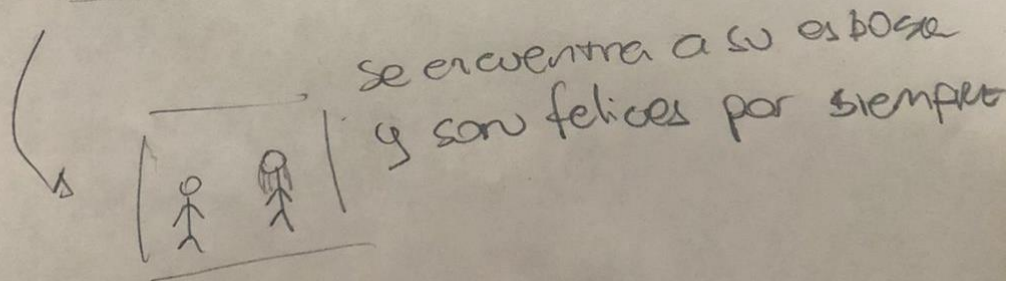 se encuentra a su esposa
y son felices por siempre